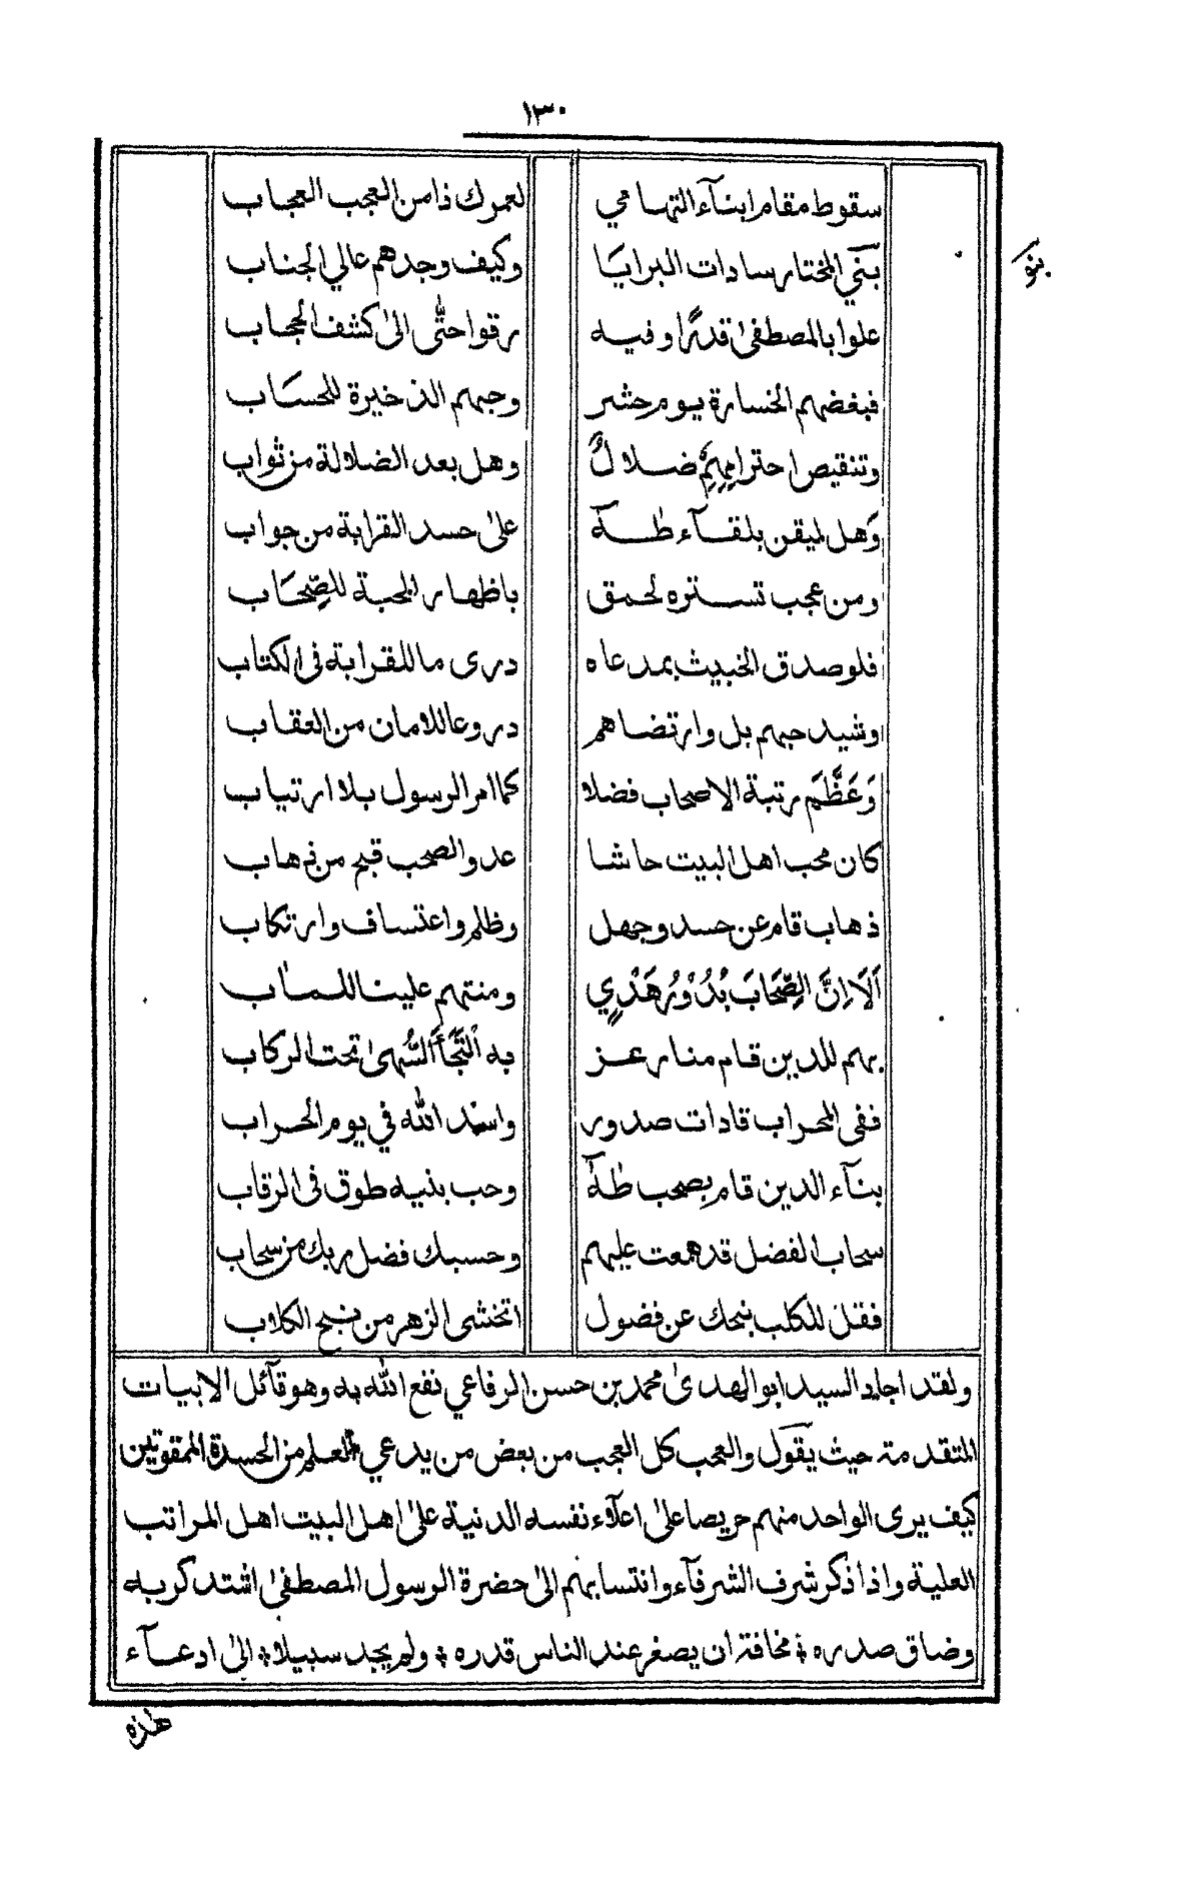 ١٣٠
سقوط مقام ابنآء التهامي لعمرك ذا من العجب العجاب
بَنَي المختار سادات البرايَا وكيف وجدهم عالي الجناب
بنو
علوا بالمصطفىٰ قدرًا وفيه رقوا حتّٰى الىٰ كشف الحجاب
فبغضهم الخسارة يوم حشر وحبهم الذخيرة للحسَاب
وتنقيص احترامِهِمْ ضلالٌ وهل بعد الضلالة من ثواب
وَهل لميقن بلقآء طٰهٓ علىٰ حسد القرابة من جواب
ومن عجب تستره لحمق باظهار المحبة للصِّحَاب
فلو صدق الخبيث بمدعاه درى ما للقرابة فى الكتاب
وشيد حبهم بل وارتضاهم دروعا للامان من العقاب
وَعَظَّمَ رتبة الاصحاب فضلا كما امر الرسول بلا ارتياب
كان محب اهل البيت حاشا عدو الصحب قبح من ذهاب
ذهاب قام عن حسد وجهل وظلم واعتساف وارتكاب
اَلَا اِنَّ الصِّحَابَ بُدُوْرُ هَدْيٍ ومنتهم علينا للمآب
بهم للدين قام منار عز به الْتَجَأَ السُّهىٰ تحت الركاب
ففى المحراب قادات صدور واسد الله في يوم الحراب
بنآء الدين قام بِصحب طٰهٓ وحب بنيه طوق فى الرقاب
سحاب الفضل قد همعت عليهم وحسبك فضل ربك من سحاب
فقل للكلب نبحك عن فضول اتخشى الزهر من نبح الكلاب
ولقد اجاد السيد ابو الهدىٰ محمد بن حسن الرفاعي نفع الله به وهو قآئل الابيات
المتقدمة حيث يقول والعجب كل العجب من بعض من يدعي العلم من الحسدة الممقوتين
كيف يرى الواحد منهم حريصا علىٰ اعلآء نفسه الدنية علىٰ اهل البيت اهل المراتب
العلية واذا ذكر شرف الشرفآء وانتسابهم الىٰ حضرة الرسول المصطفىٰ اشتد كربه
وضاق صدره ؛ مخافة ان يصغر عند الناس قدره ؛ ولم يجد سبيلا ؛ الىٰ ادعآء
هذه